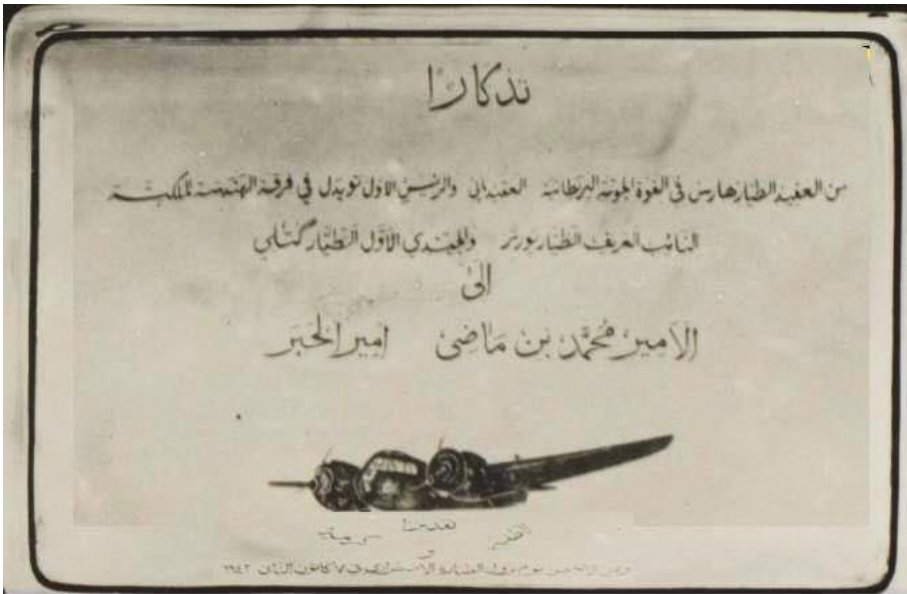 تذكارًا
من العقيد الطيار هارس في القوة الجوية البريطانية العقداني والرئيس الاول تويدل في فرقة الهندسة الملكية
النائب العريف الطيار بورتر والجندي الأول الطيار گتلي
الى
الامير محمد بن ماضي امير الخبر
١٩٤٢